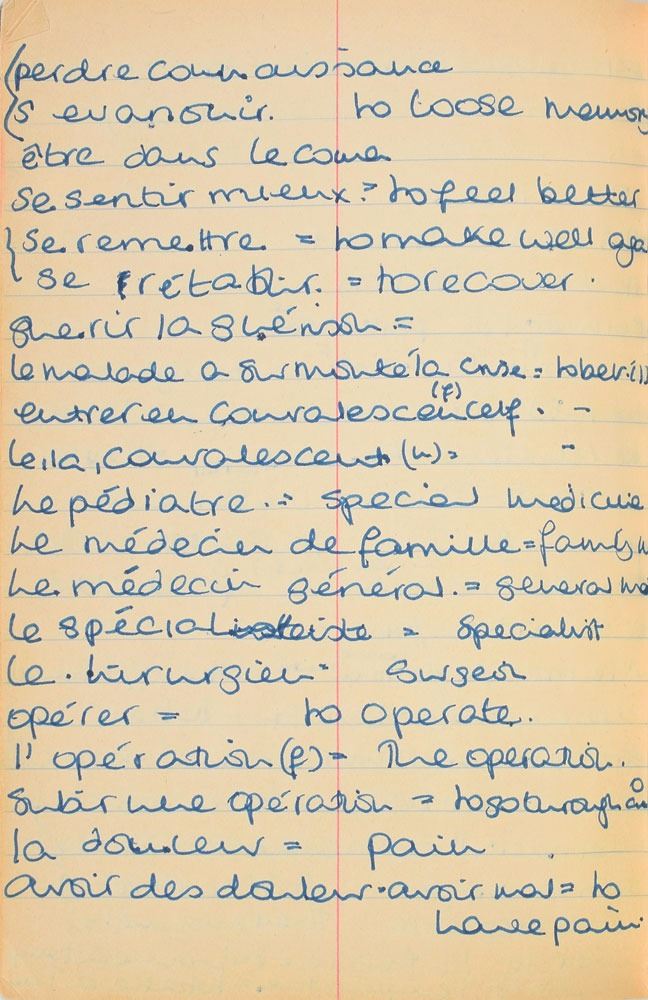 perdre connaissance
s'evanouir. to loose memory
être dans le coma
se sentir mieux = to feel better
se remettre = to make well aga
se rétablir. = to recover.
guerir la guérison =
le malade a surmonté la crise = to be ill
entrer en convalescence (f) . -
le, la, convalescent (n) = -
Le pédiatre .= special medicine
Le médecin de famille = family
Le médecin général. = general
le spécialiste = specialist
Le . hirurgien - surgeon
opérer = to operate.
l'opération (f) = The operation.
subir une opération = to go through an o
la douleur = pain
avoir des douleur . avoir mal = to
have pain.